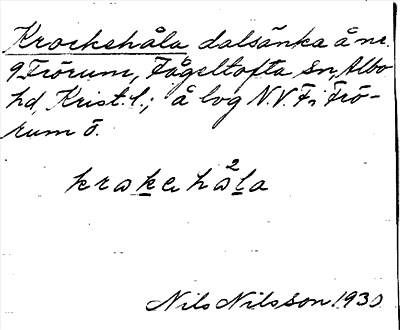 Krockehåla dalsänka å nr.
9 Frörum, Fågeltofta sn, Albo
hd, Krist. l.; å log N.V. Fr. Frö-
rum ö.
krakehåla
2
Nils Nilsson 1930